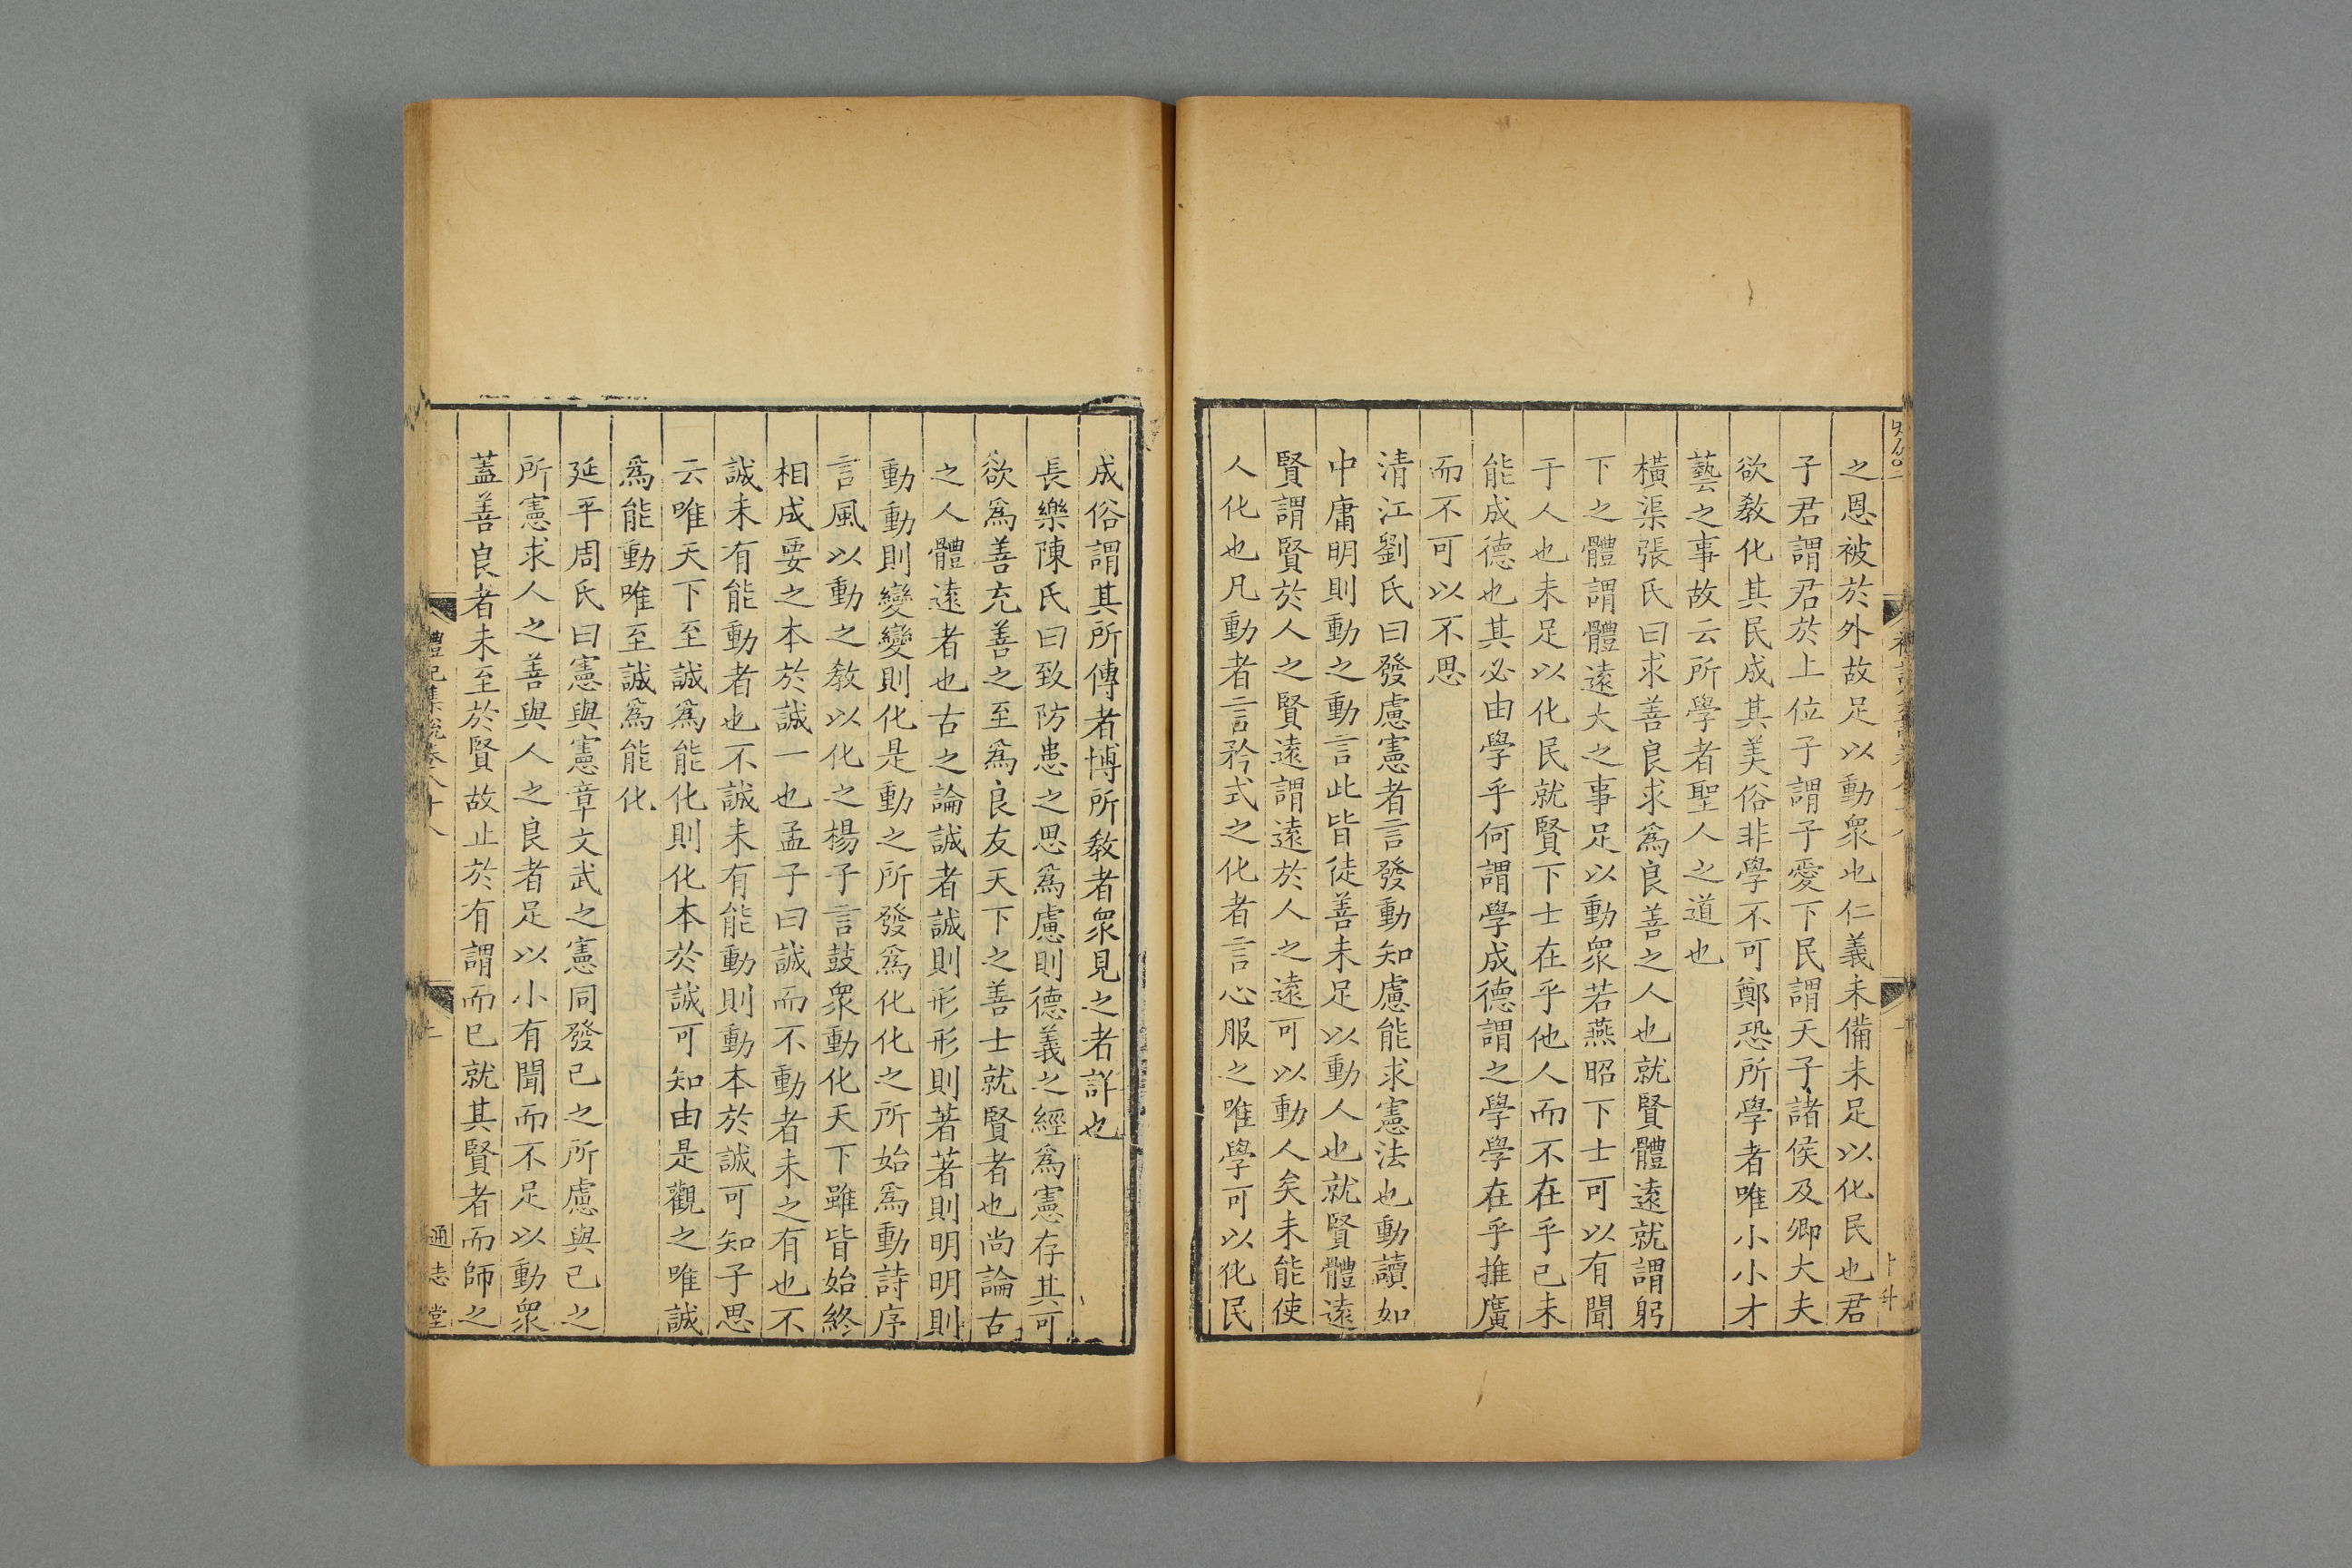 之恩被於外故足以動衆也仁義未備未足以化民也君
子君謂君於上位子謂子愛下民謂天子諸侯及卿大夫
欲教化其民成其美俗非學不可鄭恐所學者唯小小才
藝之事故云所學者聖人之道也
橫渠張氏曰求善良求爲良善之人也就賢體遠就謂躬
下之體謂體遠大之事足以動衆若燕昭下士可以有聞
于人也未足以化民就賢下士在乎他人而不在乎已未
能成德也其必由學乎何謂學成德謂之學學在乎推廣
而不可以不思
清江劉氏曰發慮憲者言發動知慮能求憲法也動讀如
中庸明則動之動言此皆徒善未足以動人也就賢體遠
賢謂賢於人之賢遠謂遠於人之遠可以動人矣未能使
人化也凡動者言矜式之化者言心服之唯學可以化民
成俗謂其所傳者博所教者衆見之者詳也
長樂陳氏曰致防患之思爲慮則德義之經爲憲存其可
欲爲善充善之至爲良友天下之善士就賢者也尚論古
之人體遠者也古之論誠者誠則形形則著著則明明則
動動則變變則化是動之所發爲化化之所始爲動詩序
言風以動之教以化之楊子言鼓衆動化天下雖皆始終
相成要之本於誠一也孟子曰誠而不動者未之有也不
誠未有能動者也不誠未有能動則動本於誠可知子思
云唯天下至誠爲能化則化本於誠可知由是觀之唯誠
爲能動唯至誠爲能化
延平周氏曰憲與憲章文武之憲同發已之所慮與已之
所憲求人之善與人之良者足以小有聞而不足以動衆
蓋善良者未至於賢故止於有謂而已就其賢者而師之
禮記集說卷八十八
通志堂